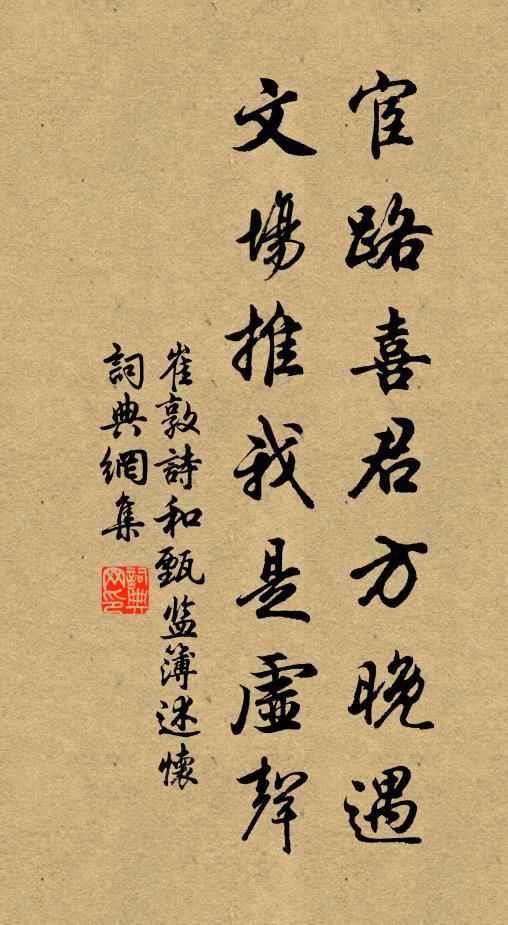 宦路喜君方晚遇
文場推我是虛聲
崔敦詩和甄监簿述懷
詞典網集
詞典网印